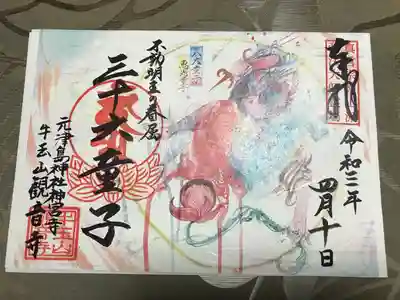 奉拝
令和三年
四月十日
不動明王の眷属
三十六童子
元津島神社神宮寺
牛玉山観音寺